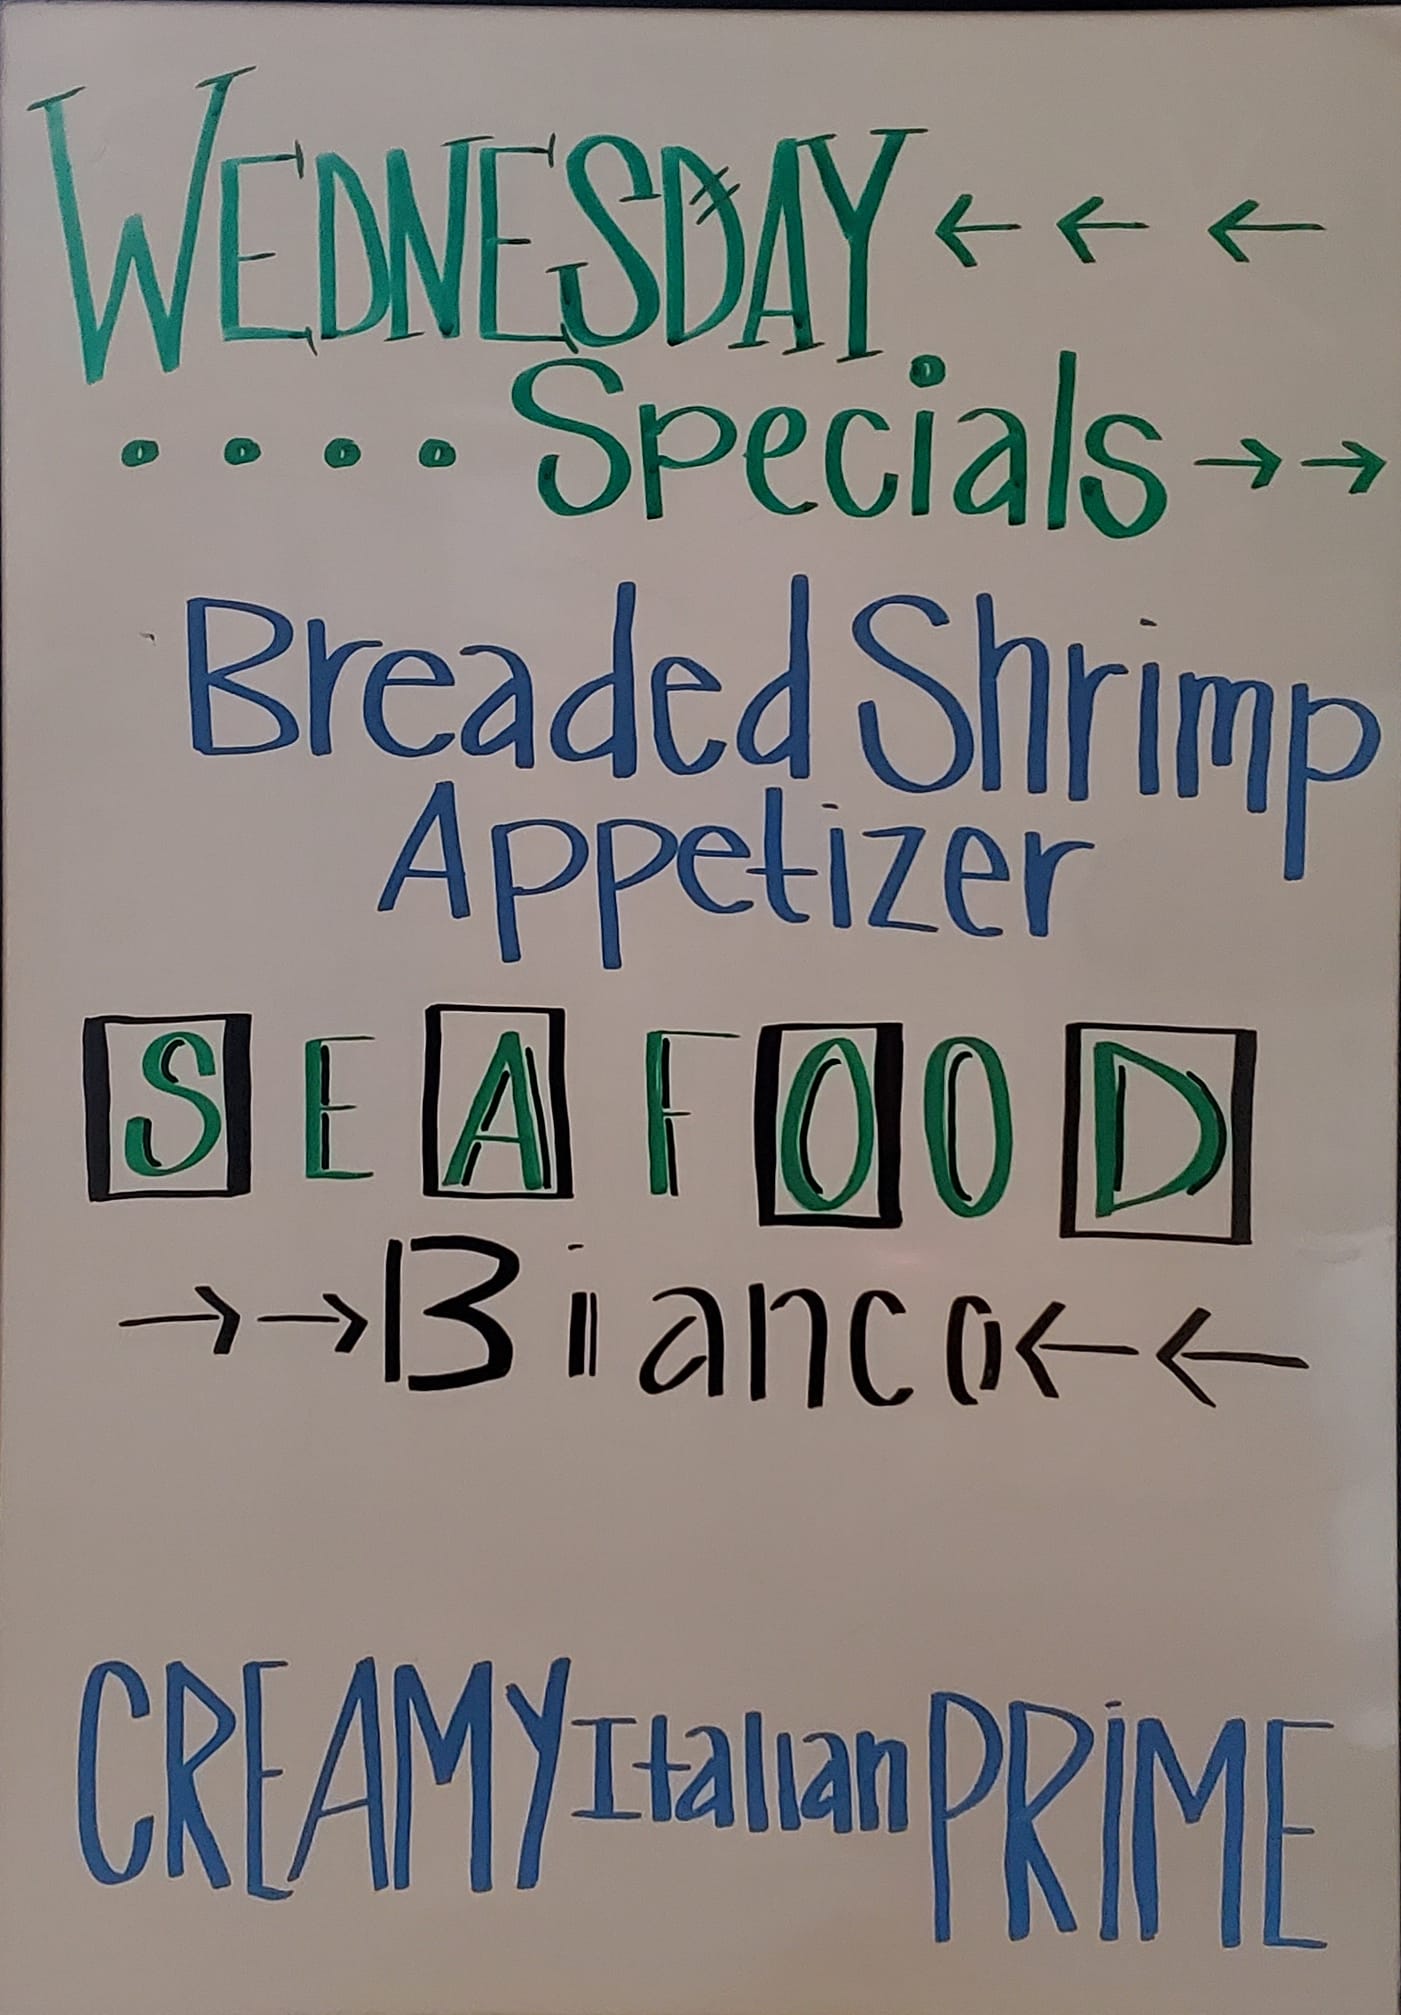 WEDNESDAY ← ← ←
.... Specials → →
Breaded Shrimp
Appetizer
SEAFOOD
→ → Bianco ← ←
CREAMY Italian PRiME